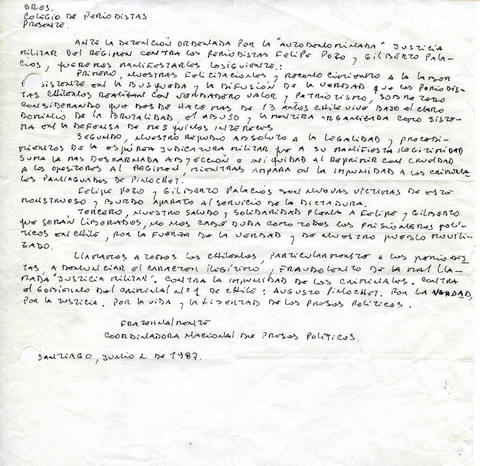 SRES.
COLEGIO DE PERIODISTAS
PRESENTE.
ANTE LA DETENCIÓN ORDENADA POR LA "AUTODENOMINADA" JUSTICIA
MILITAR DEL RÉGIMEN CONTRA LOS PERIODISTAS FELIPE POZO Y GILBERTO PALA-
CIOS, QUEREMOS MANIFESTARLES LO SIGUIENTE:
PRIMERO, NUESTRAS FELICITACIONES, Y RECONOCIMIENTO A LA LABOR
SISTENTE EN LA BÚSQUEDA Y LA DIFUSIÓN DE LA VERDAD QUE LOS PERIODIS-
TAS CHILENOS REALIZAN CON VERDADERO VALOR Y PATRIOTISMO, SOBRE TODO
CONSIDERANDO QUE DESDE HACE MAS DE 13 AÑOS CHILE VIVE BAJO EL CLARO
DOMINIO DE LA BRUTALIDAD, EL ABUSO Y LA MENTIRA ORGANIZADA COMO SISTE-
MA EN LA DEFENSA DE MEZQUINOS INTERESES
SEGUNDO, NUESTRO REPUDIO ABSOLUTO A LA LEGALIDAD, Y PROCEDI-
MIENTOS DE LA ESPÚREA JUDICATURA MILITAR QUE A SU MANIFIESTA ILEGITIMIDAD
SUMA LA MAS DESCARNADA ABYECCIÓN E INIQUIDAD AL REPRIMIR CON CRUELDAD
A LOS OPOSITORES AL RÉGIMEN, MIENTRAS AMPARA EN LA IMPUNIDAD A LOS CRIMINA-
LES PANIAGUADOS DE PINOCHET.
FELIPE POZO Y GILBERTO PALACIOS SON NUEVAS VÍCTIMAS DE ESTE
MONSTRUOSO Y BURDO APARATO AL SERVICIO DE LA DICTADURA.
TERCERO, NUESTRO SALUDO Y SOLIDARIDAD PLENA A FELIPE Y GILBERTO
QUE SERÁN LIBERADOS, NO NOS CABE DUDA COMO TODOS LOS PRISIONEROS POLÍ-
TICOS EN CHILE, POR LA FUERZA DE LA VERDAD Y DE NUESTRO PUEBLO MOVILI-
ZADO.
LLAMAMOS A TODOS LOS CHILENOS, PARTICULARMENTE A LOS PERIODIS-
TAS, A DENUNCIAR EL CARACTER ILEGÍTIMO Y FRAUDULENTO DE LA MAL LLA-
MADA "JUSTICIA MILITAR". CONTRA LA IMPUNIDAD DE LOS CRIMINALES. CONTRA
EL GOBIERNO DEL CRIMINAL Nº 1 DE CHILE: AUGUSTO PINOCHET. POR LA VERDAD,
POR LA JUSTICIA. POR LA VIDA Y LA LIBERTAD DE LOS PRESOS POLÍTICOS.
FRATERNALMENTE
COORDINADORA NACIONAL DE PRESOS POLÍTICOS.
SANTIAGO, JUNIO 2 DE 1987.